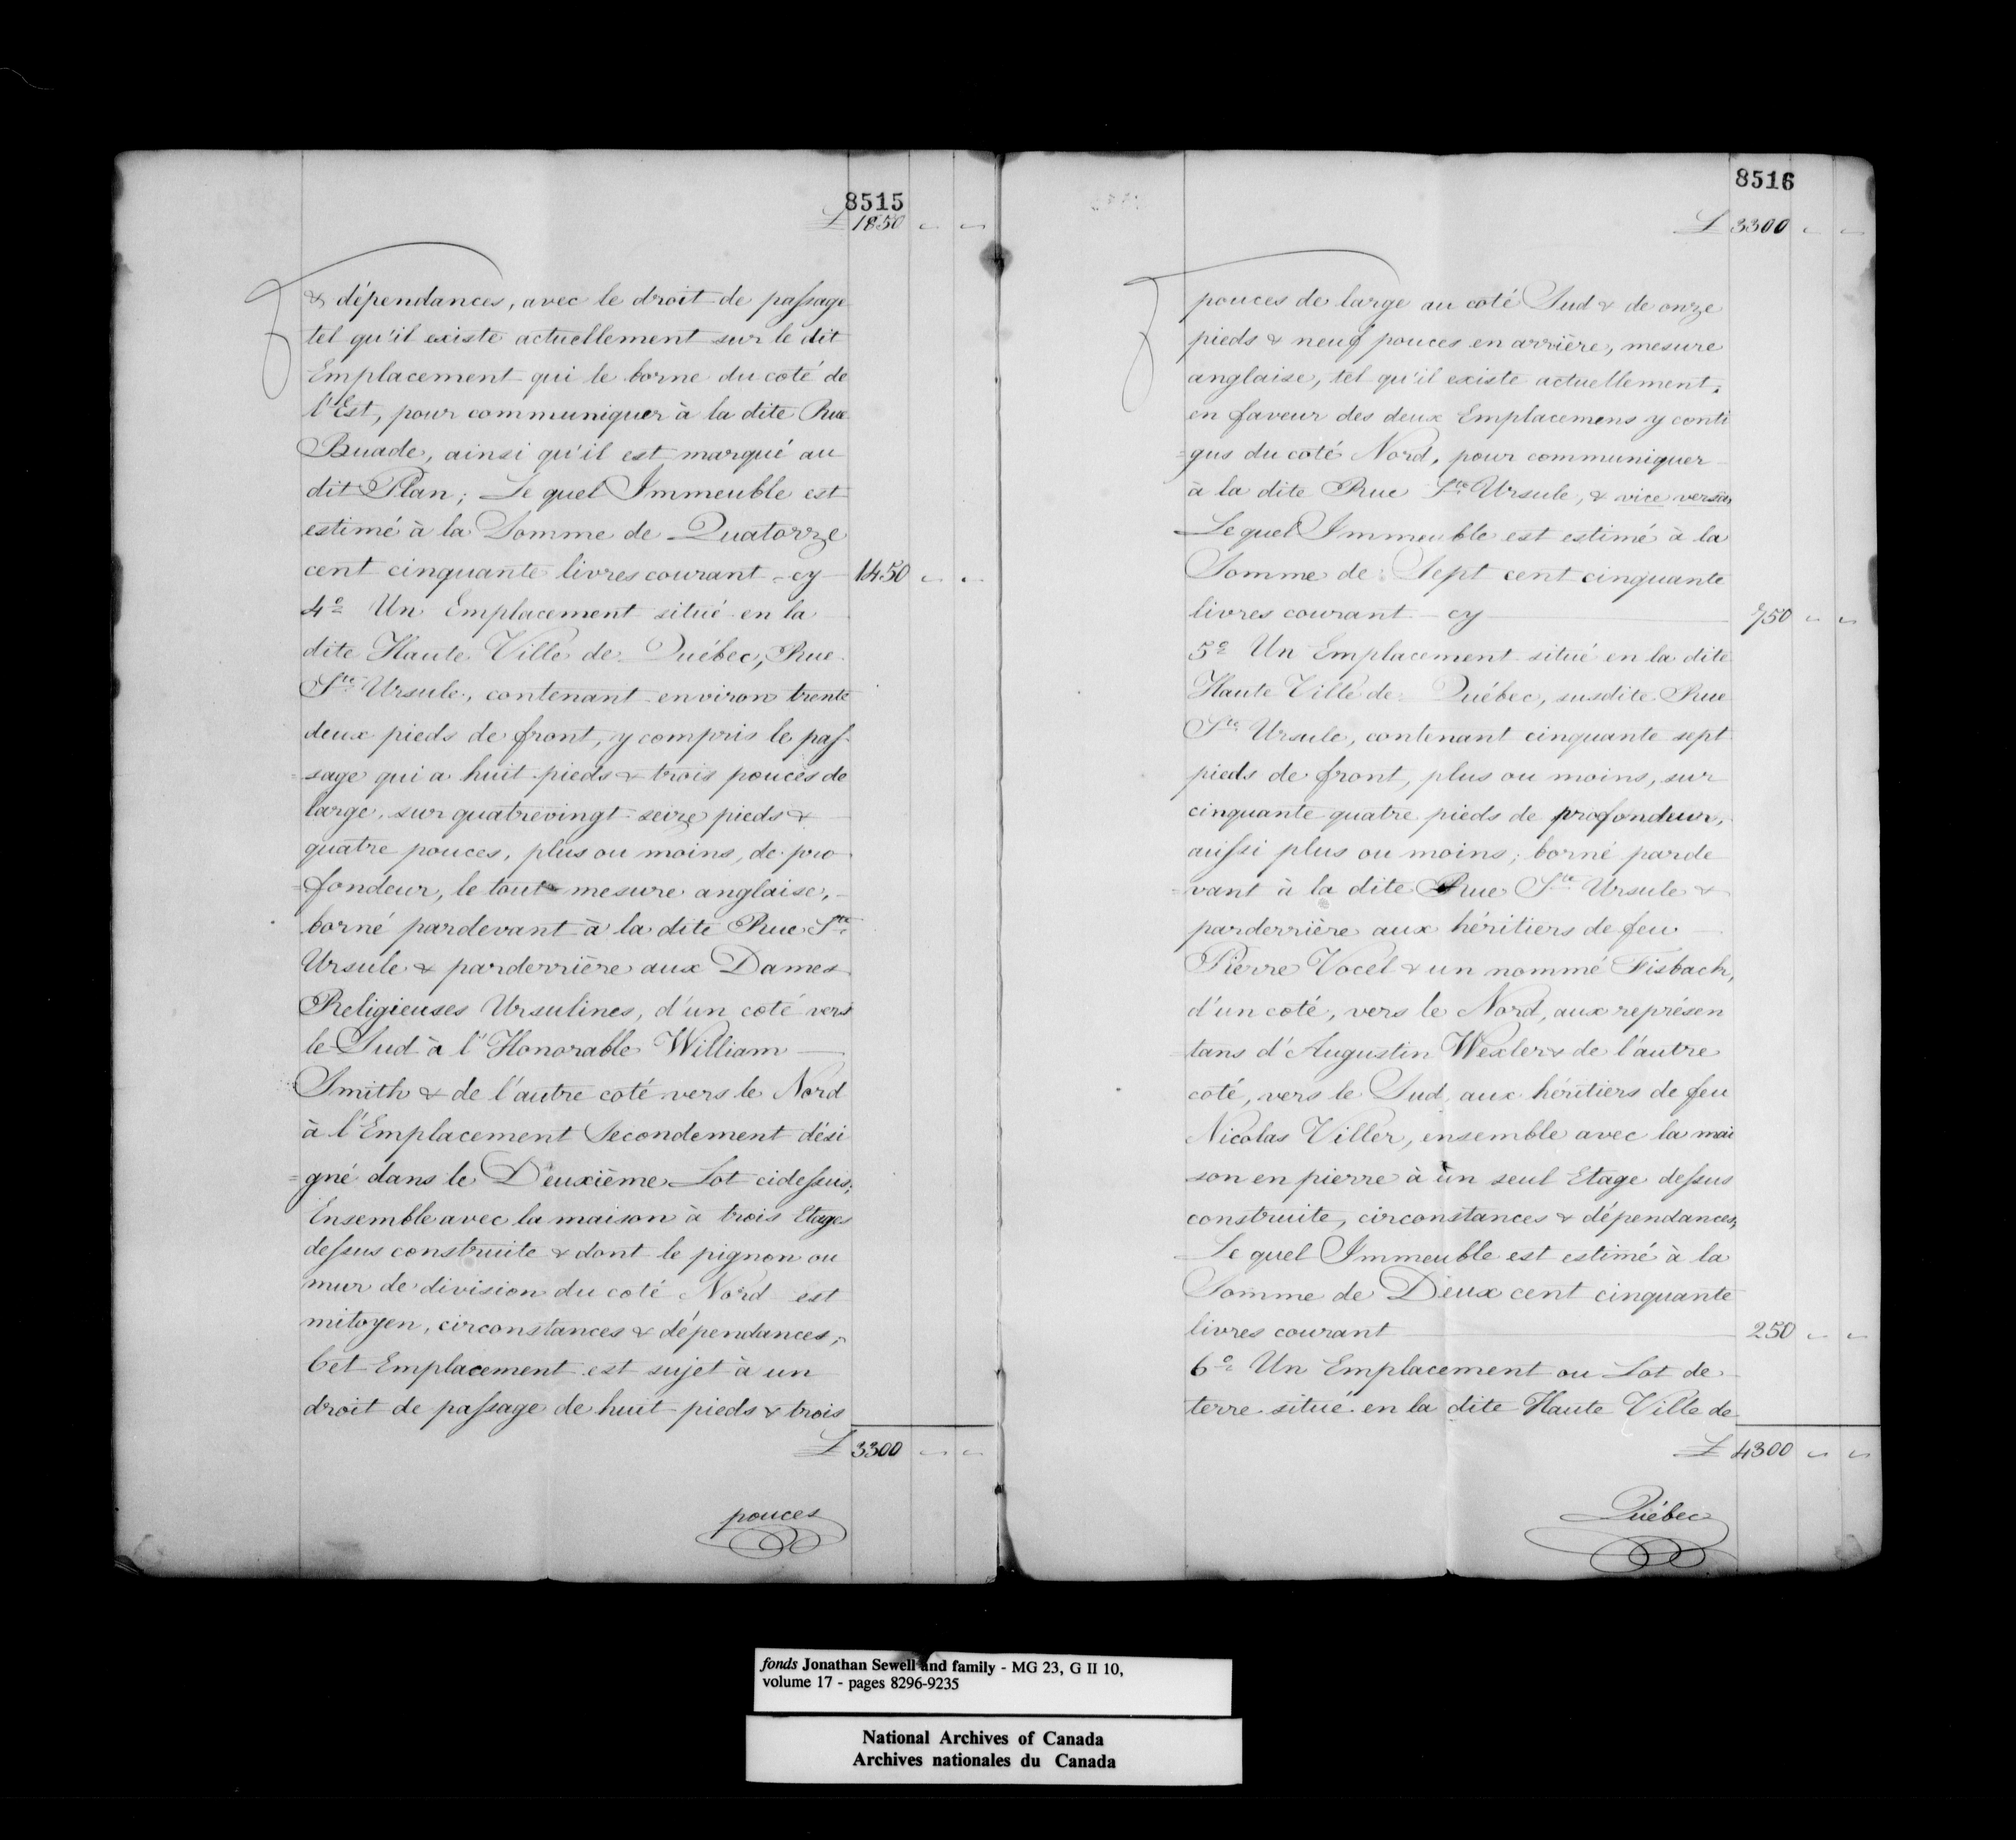 8515
£ 1850 " "
& dépendances, avec le droit de passage
tel qu'il existe actuellement sur le dit
Emplacement qui le borne du coté de
l'Est, pour communiquer à la dite Rue
Buade, ainsi qu'il est marqué au
dit Plan; Le quel Immeuble est
estimé à la Somme de Quatorze
cent cinquante livres courant - cy 1450 " "
4º Un Emplacement situé en la
dite Haute Ville de Québec, Rue
Ste Ursule, contenant environ trente
deux pieds de front, y compris le pas-
=sage qui a huit pieds & trois pouces de
large, sur quatrevingt seize pieds &
quatre pouces, plus ou moins, de pro
=fondeur, le tout mesure anglaise,
borné pardevant à la dite Rue Ste
Ursule & parderrière aux Dames
Religieuses Ursulines, d'un coté vers
le Sud à l'Honorable William
Smith & de l'autre coté vers le Nord
à l'Emplacement Secondement dési
=gné dans le Deuxième Lot cidessus;
Ensemble avec la maison à trois Etages
dessus construite & dont le pignon ou
mur de division du coté Nord est
mitoyen, circonstances & dépendances;
Cet Emplacement est sujet à un
droit de passage de huit pieds & trois
£ 3300 " "
pouces
8516
£ 3300 " "
pouces de large au coté Sud & de onze
pieds & neuf pouces en arrière, mesure
anglaise, tel qu'il existe actuellement,
en faveur des deux Emplacemens y conti
=gus du coté Nord, pour communiquer
à la dite Rue Ste Ursule, & vice versâ,
Le quel Immeuble est estimé à la
Somme de Sept cent cinquante
livres courant - cy 750 " "
5º Un Emplacement situé en la dite
Haute Ville de Québec, susdite Rue
Ste Ursule, contenant cinquante sept
pieds de front, plus ou moins, sur
cinquante quatre pieds de profondeur,
aussi plus ou moins; borné parde
=vant à la dite Rue Ste Ursule &
parderrière aux héritiers de feu
Pierre Vocel & un nommé Fisbach,
d'un coté, vers le Nord, aux représen
=tans d'Augustin Wexler & de l'autre
coté, vers le Sud, aux héritiers de feu
Nicolas Viller, ensemble avec la mai
son en pierre à un seul Etage dessus
construite, circonstances & dépendances,
Le quel Immeuble est estimé à la
Somme de Deux cent cinquante
livres courant 250 " "
6º Un Emplacement ou Lot de
terre situé en la dite Haute Ville de
£ 4300 " "
Québec
fonds Jonathan Sewell and family - MG 23, G II 10,
volume 17 - pages 8296-9235
National Archives of Canada
Archives nationales du Canada